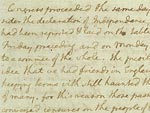 Congress proceeded the same day
sider the declaration of Independance
had been reported & laid on the table
Friday preceding, and on Monday
to a commee of the whole. the pusill
idea that we had friends in England
keeping terms with, still haunted the
of many. for this reason those pass
conveyed censures on the people of